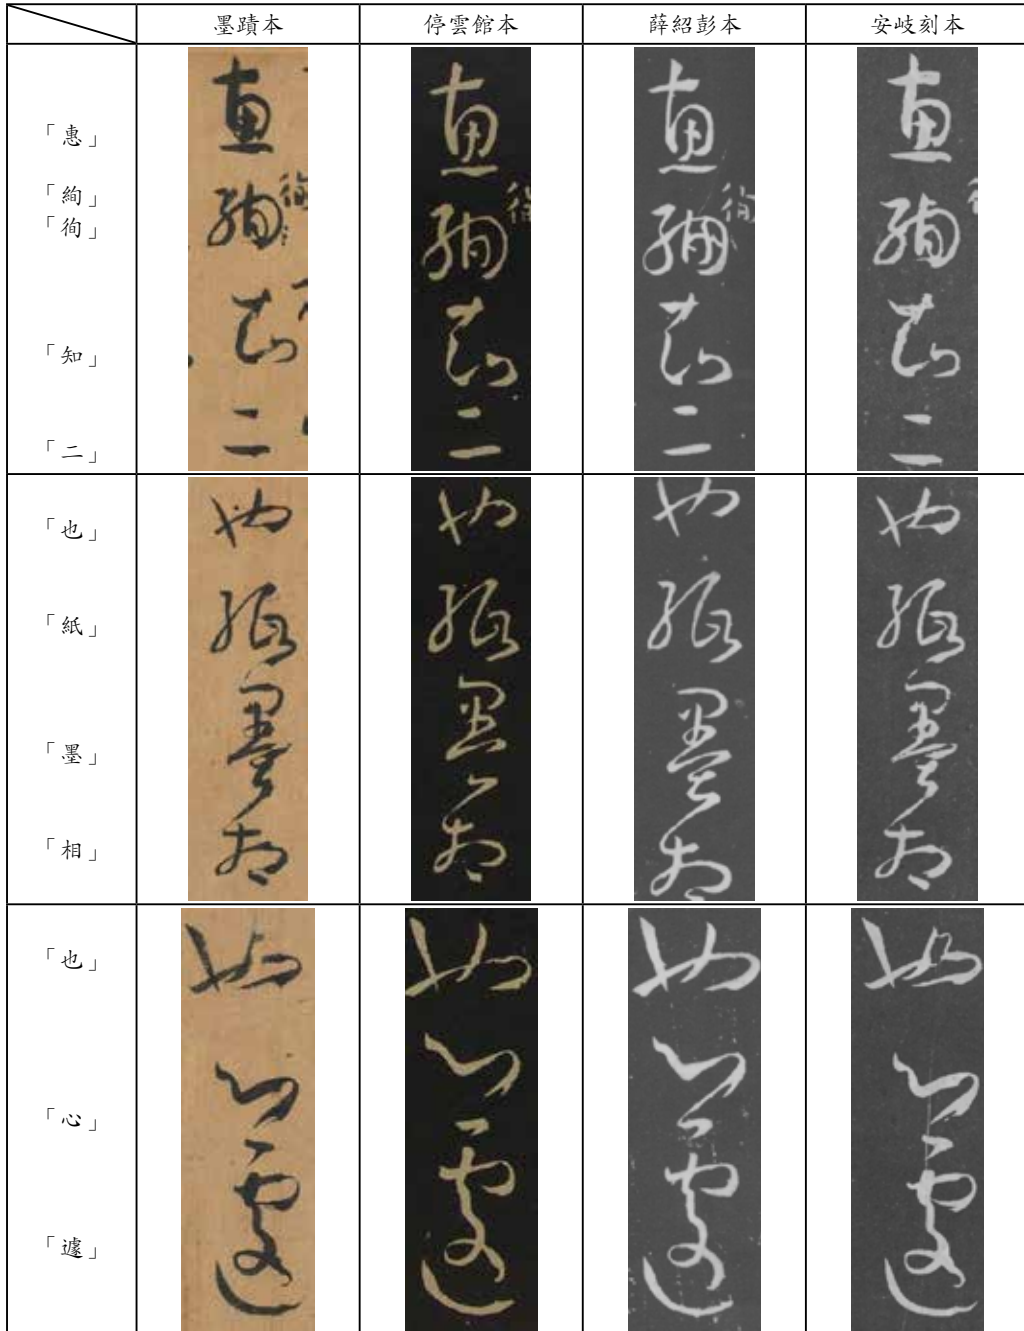 墨蹟本 停雲館本 薛紹彭本 安岐刻本
「惠」
「絢」
「徇」
「知」
「二」
「也」
「紙」
「墨」
「相」
「也」
「心」
「遽」